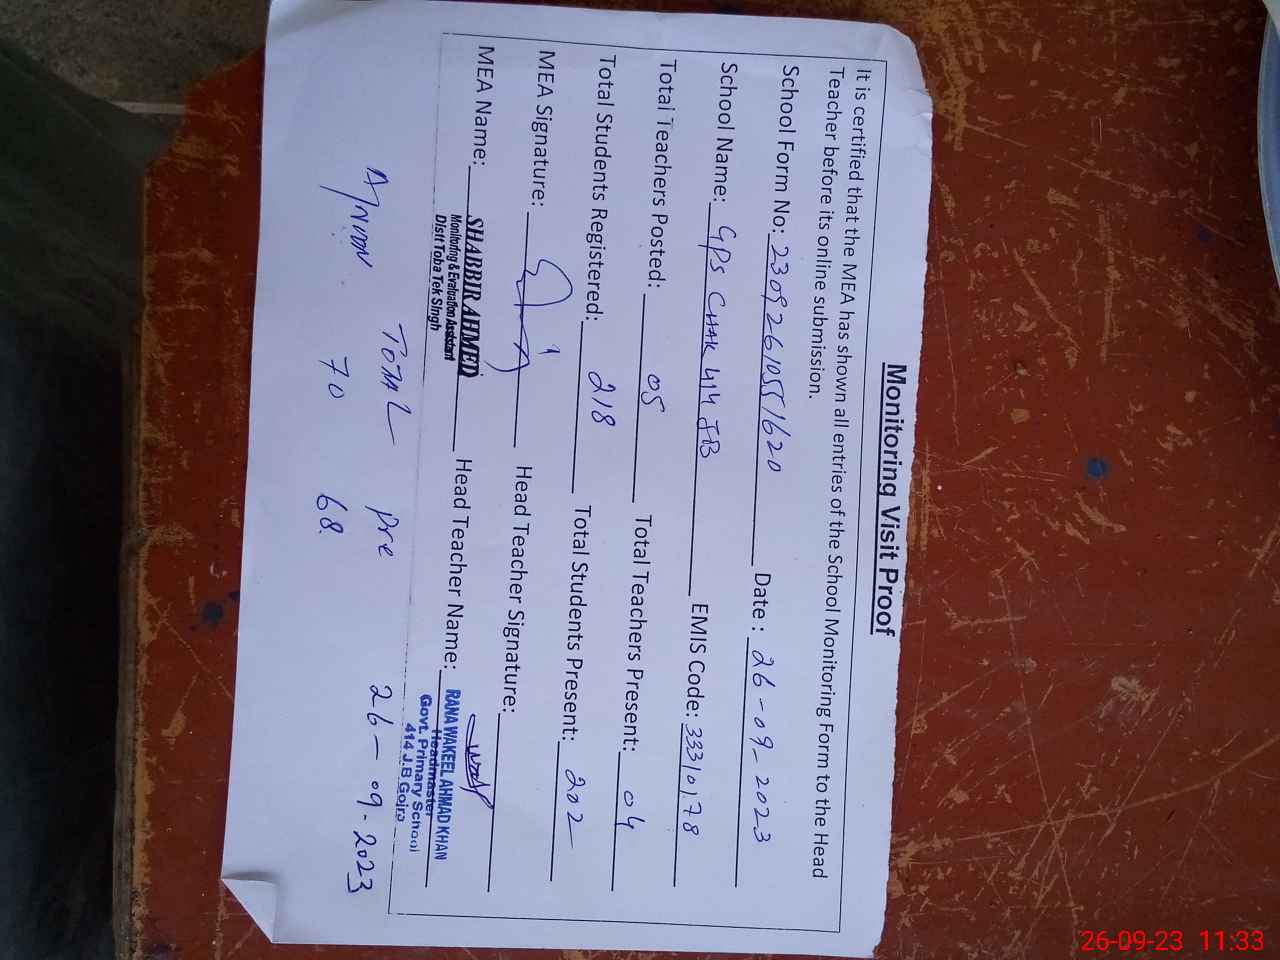 Monitoring Visit Proof
It is certified that the MEA has shown all entries of the School Monitoring Form to the Head
Teacher before its online submission.
School Form No: 23092610551620 Date : 26-09-2023
School Name: GPS CHAK 414 JB EMIS Code: 33310178
Total Teachers Posted: 05 Total Teachers Present: 04
Total Students Registered: 218 Total Students Present: 202
MEA Signature: Head Teacher Signature:
MEA Name: SHABBIR AHMED Head Teacher Name: RANA WAKEEL AHMAD KHAN
Monitoring & Evaluation Assistant
Distt Toba Tek Singh
Headmaster
Govt. Primary School
414 J.B Gojra
Total Pre 26-09-2023
70 68
26-09-23 11:33